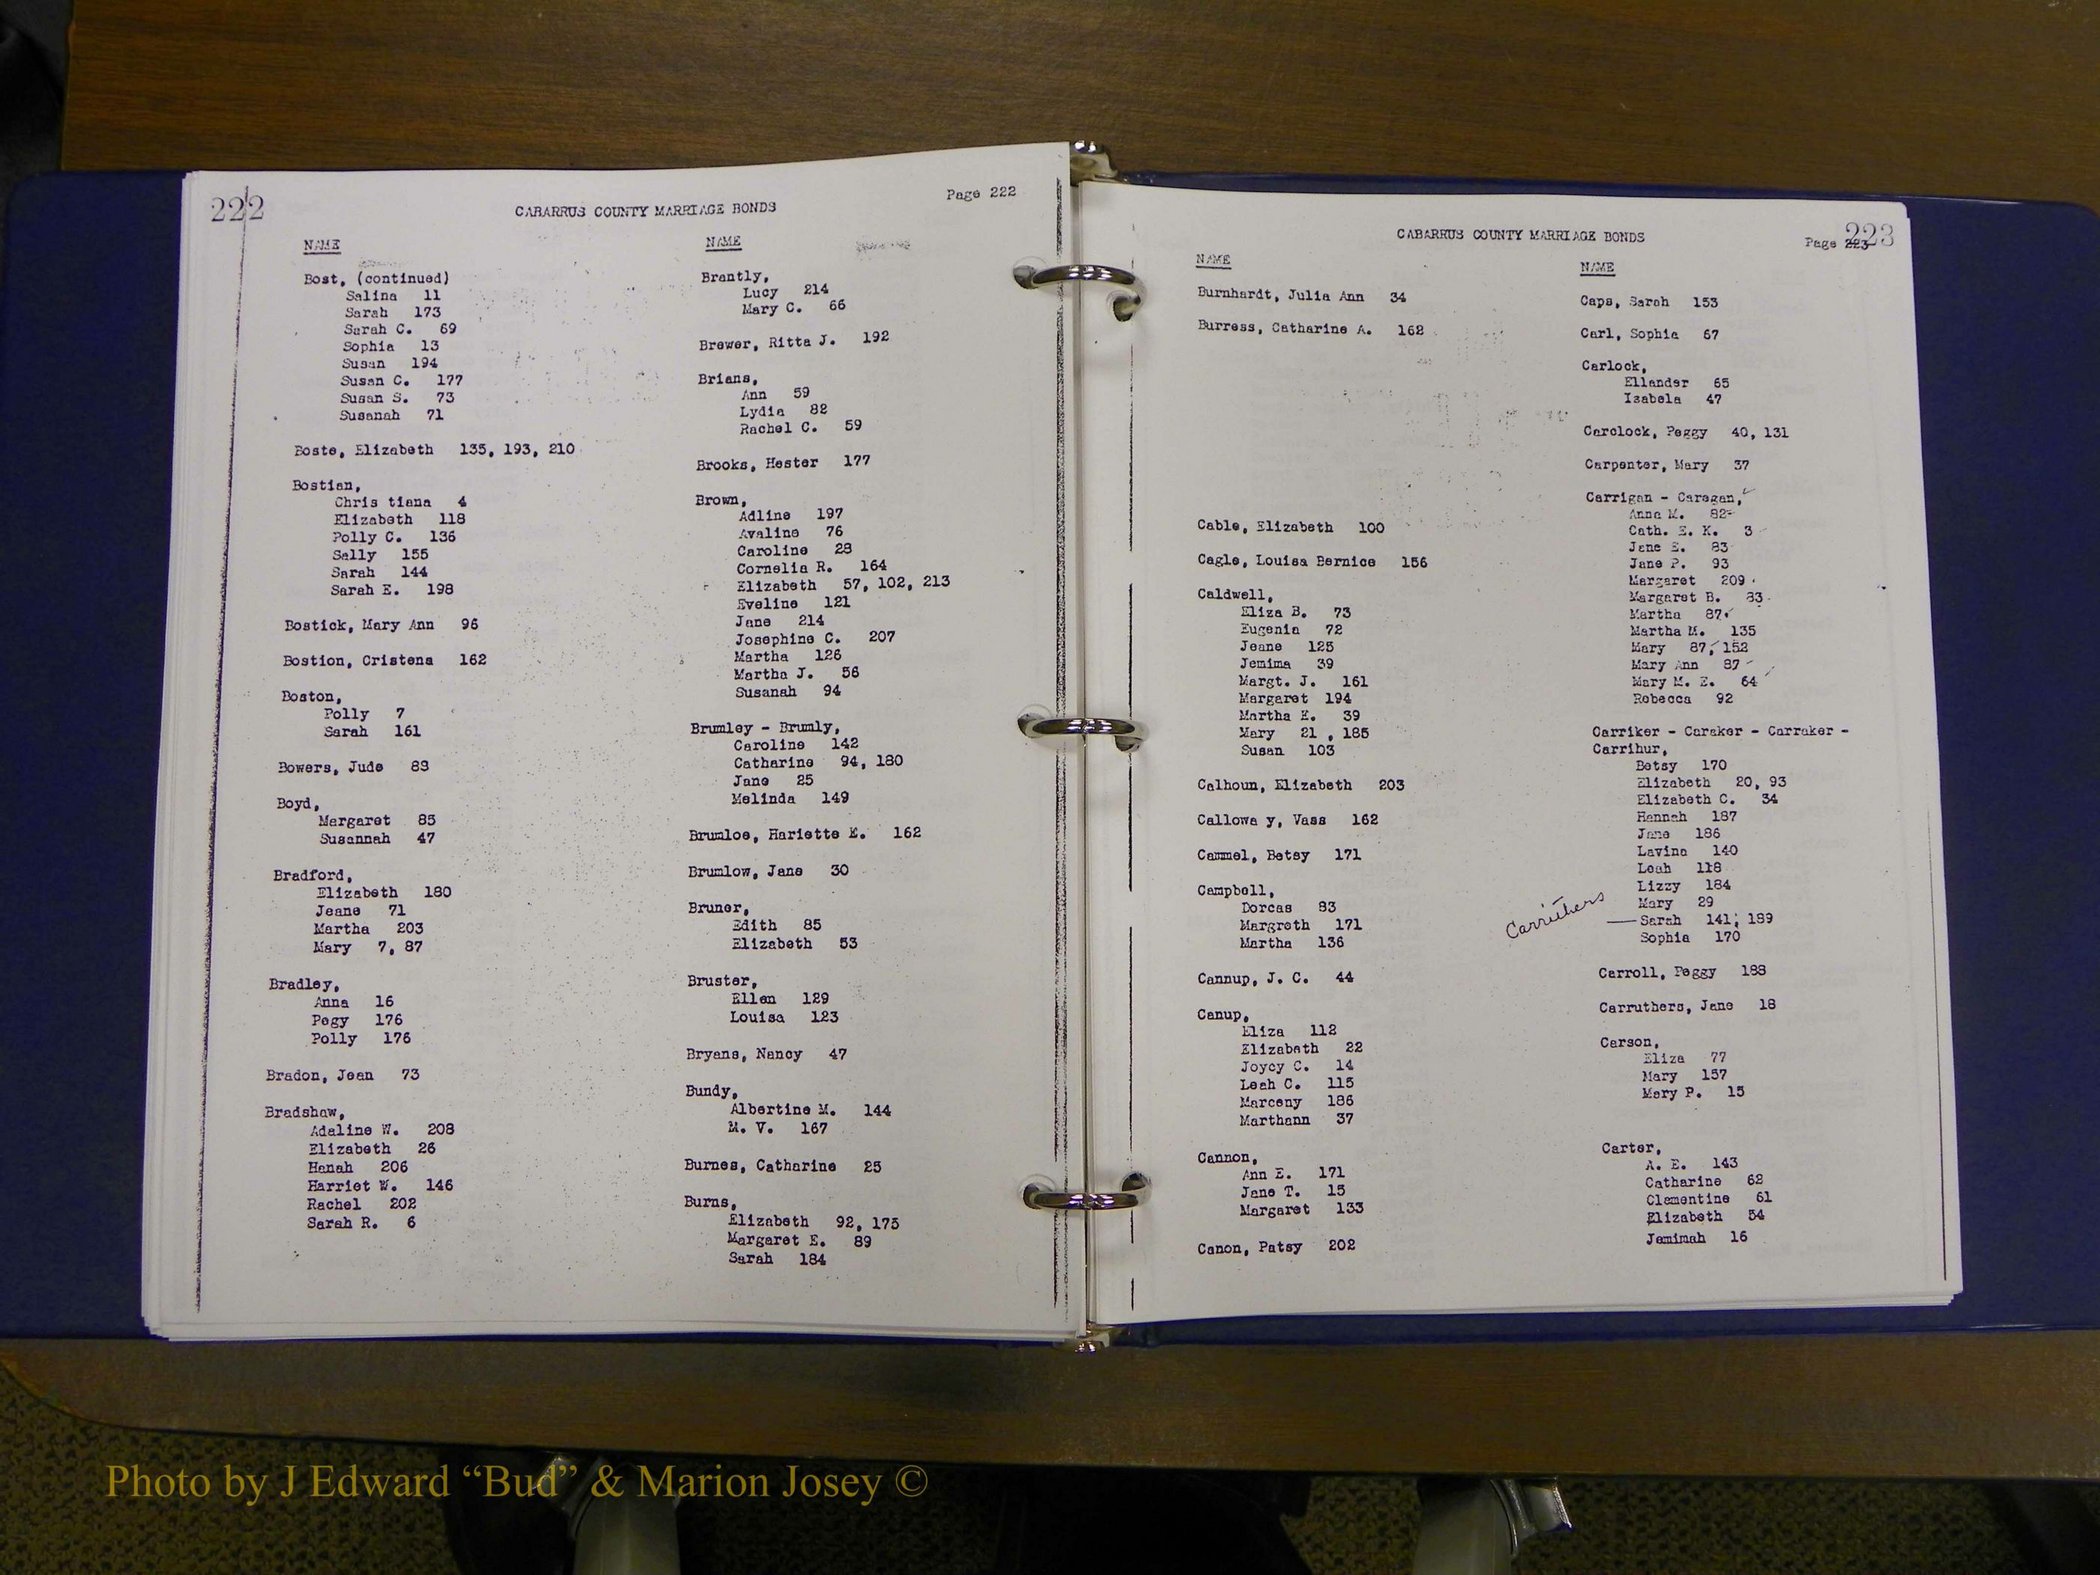 222
CABARRUS COUNTY MARRIAGE BONDS
Page 222
NAME
Bost, (continued)
Salina 11
Sarah 173
Sarah C. 69
Sophia 13
Susan 194
Susan C. 177
Susan S. 73
Susanah 71
Boste, Elizabeth 135, 193, 210
Bostian,
Chris tiana 4
Elizabeth 118
Polly C. 136
Sally 155
Sarah 144
Sarah E. 198
Bostick, Mary Ann 96
Bostion, Cristena 162
Boston,
Polly 7
Sarah 161
Bowers, Jude 83
Boyd,
Margaret 85
Susannah 47
Bradford,
Elizabeth 180
Jeane 71
Martha 203
Mary 7, 87
Bradley,
Anna 16
Pegy 176
Polly 176
Bradon, Jean 73
Bradshaw,
Adaline W. 208
Elizabeth 26
Hanah 206
Harriet W. 146
Rachel 202
Sarah R. 6
NAME
Brantly,
Lucy 214
Mary C. 66
Brewer, Ritta J. 192
Brians,
Ann 59
Lydia 82
Rachel C. 59
Brooks, Hester 177
Brown,
Adline 197
Avaline 76
Caroline 28
Cornelia R. 164
Elizabeth 57, 102, 213
Eveline 121
Jane 214
Josephine C. 207
Martha 126
Martha J. 56
Susanah 94
Brumley - Brumly,
Caroline 142
Catharine 94, 180
Jane 25
Melinda 149
Brumloe, Hariette E. 162
Brumlow, Jane 30
Bruner,
Edith 85
Elizabeth 53
Bruster,
Ellen 129
Louisa 123
Bryans, Nancy 47
Bundy,
Albertine M. 144
M. V. 167
Burnes, Catharine 25
Burns,
Elizabeth 92, 175
Margaret E. 89
Sarah 184
CABARRUS COUNTY MARRIAGE BONDS
Page 223
223
NAME
Burnhardt, Julia Ann 34
Burress, Catharine A. 162
Cable, Elizabeth 100
Cagle, Louisa Bernice 156
Caldwell,
Eliza B. 73
Eugenia 72
Jeane 125
Jemima 39
Margt. J. 161
Margaret 194
Martha E. 39
Mary 21 , 185
Susan 103
Calhoun, Elizabeth 203
Callowa y, Vass 162
Cammel, Betsy 171
Campbell,
Dorcas 83
Margreth 171
Martha 136
Cannup, J. C. 44
Canup,
Eliza 112
Elizabeth 22
Joycy C. 14
Leah C. 115
Marceny 186
Marthann 37
Cannon,
Ann E. 171
Jane T. 15
Margaret 133
Canon, Patsy 202
NAME
Caps, Sarah 153
Carl, Sophia 67
Carlock,
Ellander 65
Izabela 47
Carolock, Peggy 40, 131
Carpenter, Mary 37
Carrigan - Caragan,
Anna M. 82
Cath. E. K. 3
Jane E. 83
Jane P. 93
Margaret 209
Margaret B. 83
Martha 87
Martha M. 135
Mary 87, 152
Mary Ann 87
Mary M. E. 64
Rebecca 92
Carriker - Caraker - Carraker -
Carrihur,
Betsy 170
Elizabeth 20, 93
Elizabeth C. 34
Hannah 187
Jane 186
Lavina 140
Leah 118
Lizzy 184
Mary 29
Carruthers — Sarah 141, 189
Sophia 170
Carroll, Peggy 188
Carruthers, Jane 18
Carson,
Eliza 77
Mary 157
Mary P. 15
Carter,
A. E. 143
Catharine 62
Clementine 61
Elizabeth 54
Jemimah 16
Photo by J Edward “Bud” & Marion Josey ©